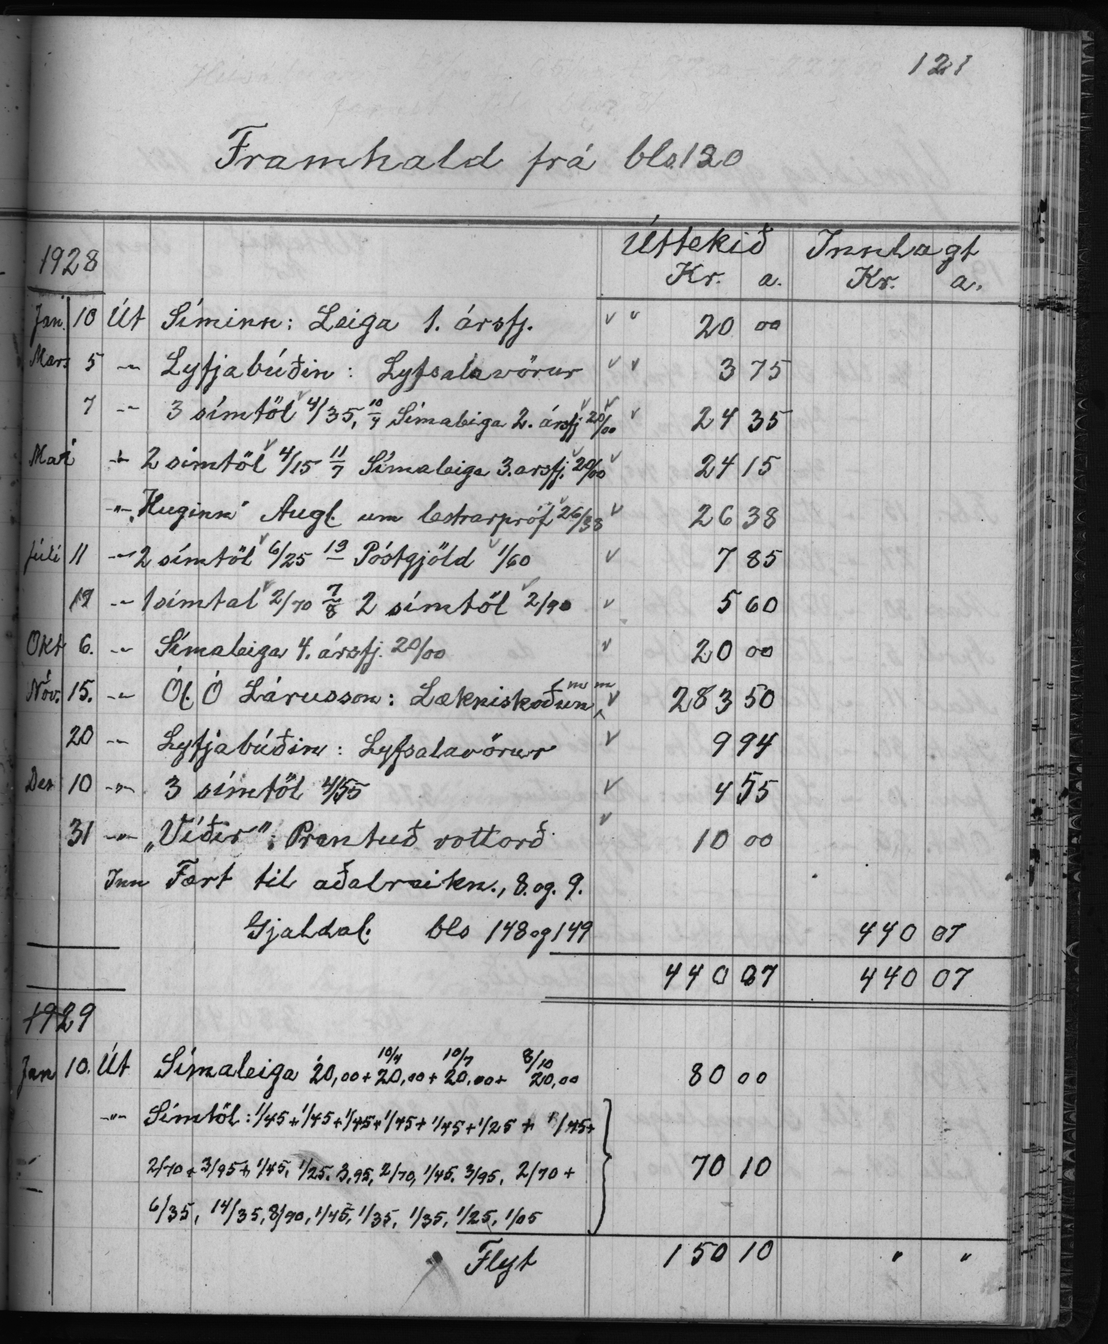 121
Framhald frá bls 120
1928 Úttekið Innlagt
Kr. a. Kr. a.
Jan. 10 Út Síminn: Leiga 1. ársfj. 20 00
Mars 5 -"- Lyfjabúðin: Lyfsalavörur 3 75
7 -"- 3 símtöl 4/35, 10/4 Símaleiga 2. ársfj 20/00 24 35
Maí -"- 2 símtöl 4/15 11/7 Símaleiga 3. arsfj. 20/00 24 15
-"- "Huginn" Augl. um lestrarpróf 26/38 26 38
Júlí 11 -"- 2 símtöl 6/25 19 Póstgjöld 1/60 7 85
19 -"- 1 símtal 2/70 7/8 2 símtöl 2/90 5 60
Okt 6. -"- Símaleiga 4. ársfj. 20/00 20 00
Nóv. 15. -"- Ól Ó Lárusson: Lækniskoðun 283 50
20 -"- Lyfjabúðin: Lyfsalavörur 9 94
Des 10 -"- 3 símtöl 4/55 4 55
31 -"- „Víðir": Prentuð vottorð 10 00
Inn Fært til aðalreikn., 8. og. 9.
Gjaldal. bls 148 og 149 440 07
440 07 440 07
1929
Jan 10. Út Símaleiga 20,00 + 10/4 20,00 + 10/7 20,00 + 8/10 20,00 80 00
-"- Símtöl: 1/45 + 1/45 + 1/45 + 1/45 + 1/45 + 1/25 + 1/45 +
2/70 + 3/95 + 1/45, 1/25. 3,95, 2/70, 1/45. 3/95, 2/70 + 70 10
6/35, 14/35, 8/90, 1/45, 1/35, 1/35, 1/25, 1/05
Flyt 150 10 " "